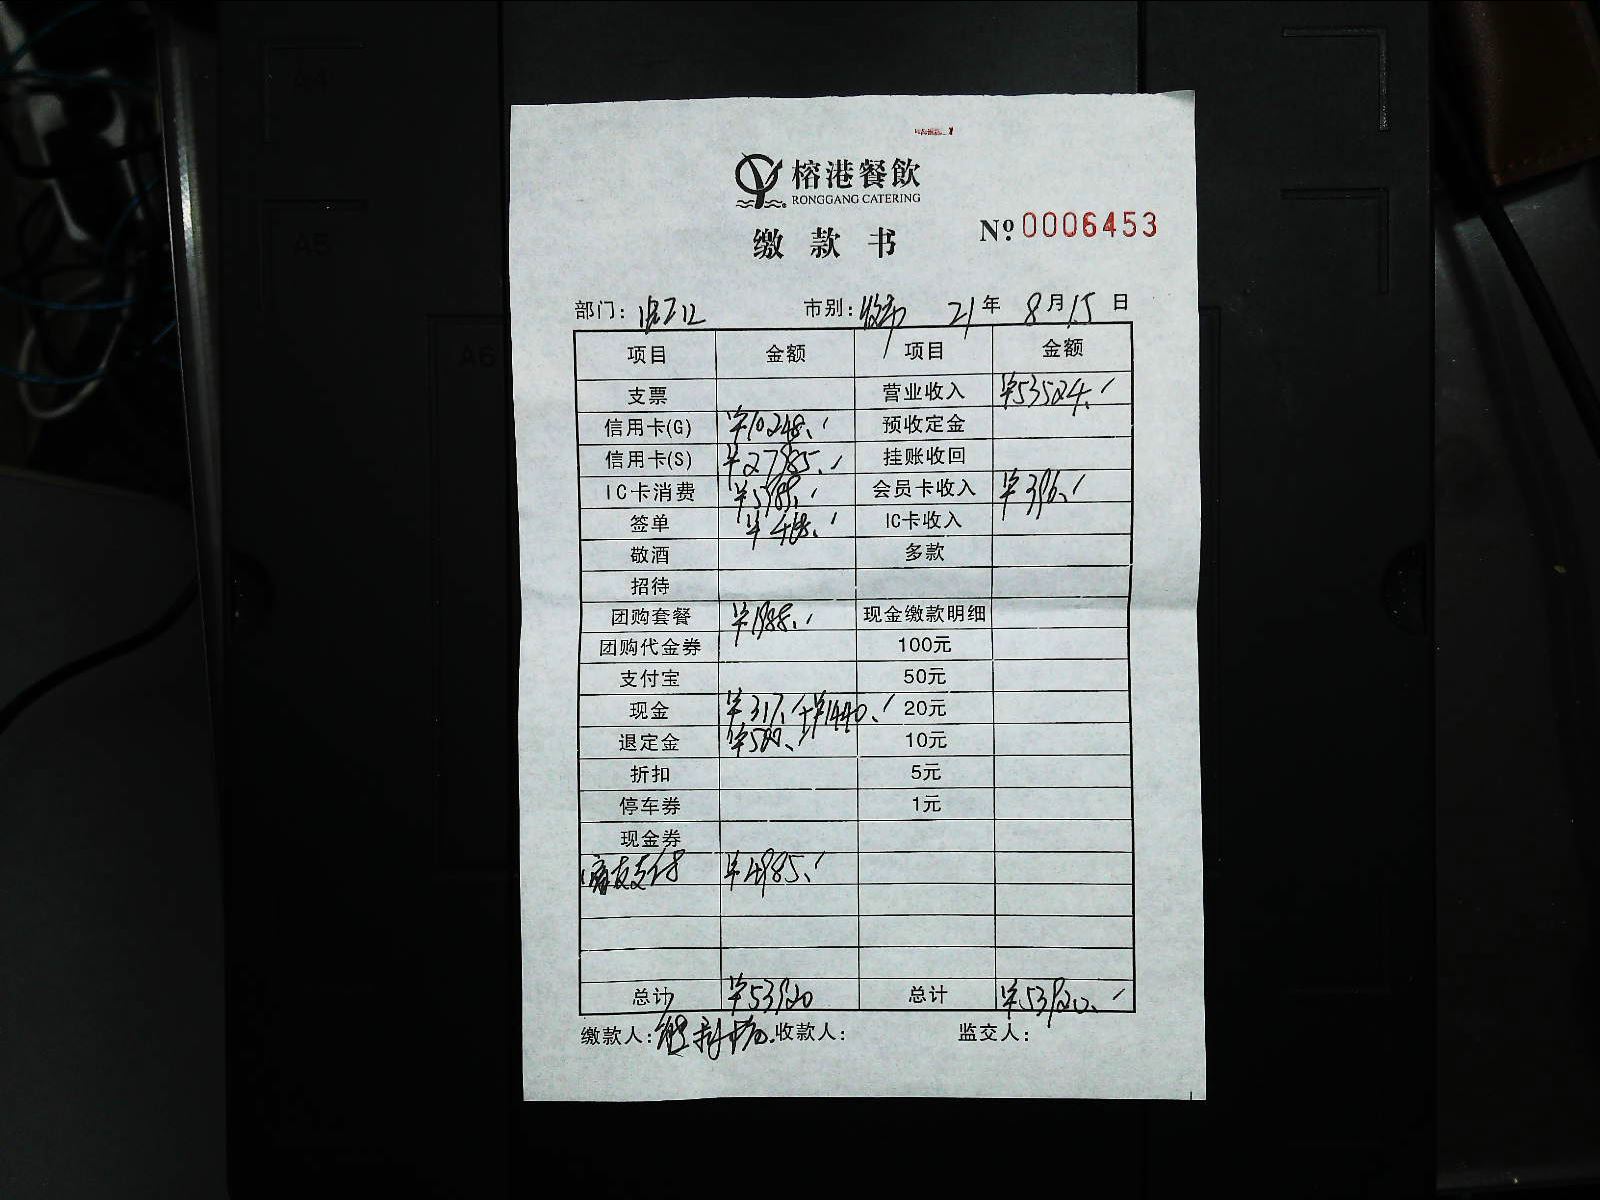 榕港餐飲
RONGGANG CATERING
缴款书
№ 0006453
部门: 市别: 21年 8月15日
项目 金额 项目 金额
支票 营业收入 ¥53524.
信用卡(G) ¥10248. 预收定金
信用卡(S) ¥27985. 挂账收回
IC卡消费 会员卡收入 ¥396.
签单 IC卡收入
敬酒 多款
招待
团购套餐 ¥1988. 现金缴款明细
团购代金券 100元
支付宝 50元
现金 ¥317.+¥1440. 20元
退定金 10元
折扣 5元
停车券 1元
现金券
支付 ¥4985.
总计 ¥53920 总计 ¥53920.
缴款人: 收款人: 监交人:
A4
A5
A6